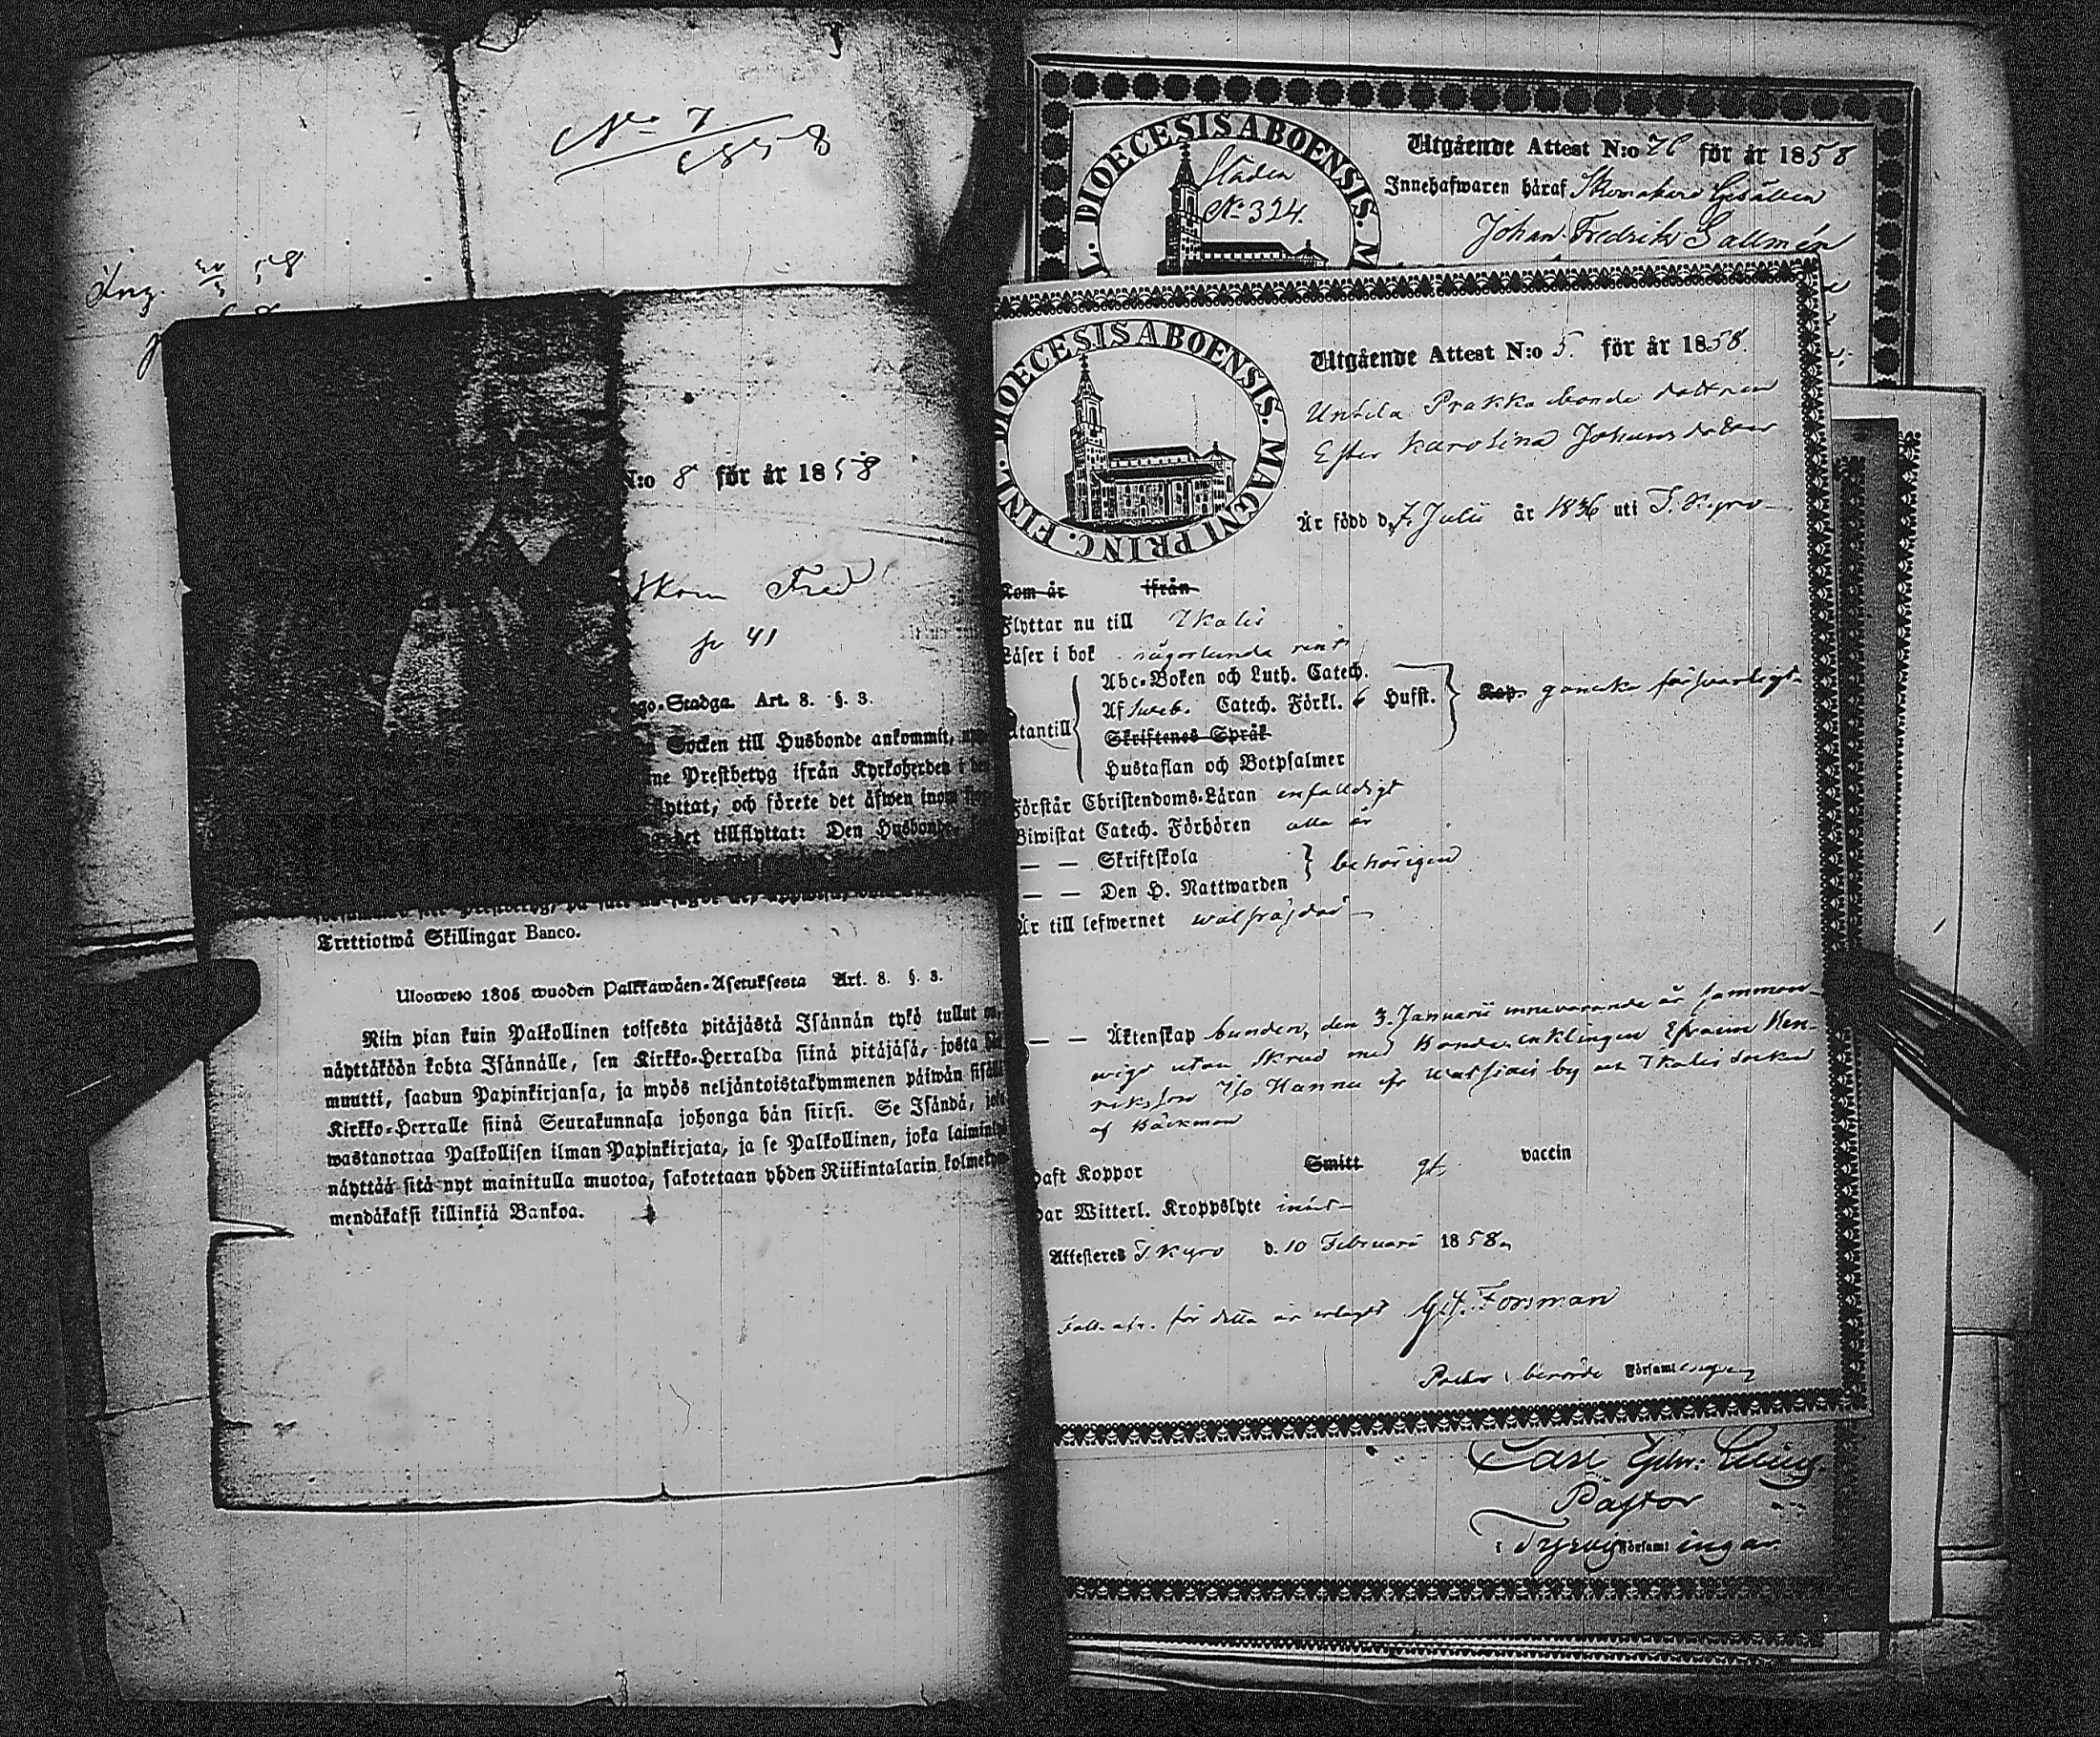 No 7
1858
Ing. 20/3 58
N:o 8 för år 1858
Skom Fred
41
go-Stadga. Art. 8. §. 3.
Socken till Husbonde ankommit,
ne Prestbetyg ifrån Kyrkoherden i
lyttat, och förete det äfwen inom
et tillflyttat: Den Husbonde,
Trettiotwå Skillingar Banco.
Uloswето 1805 wuoden Palkkawäen-Asetuksesta Art. 8. §. 3.
Niin pian kuin Palkollinen toisesta pitäjästä Isännän tykö tullut on,
näyttäköön kohta Isännälle, sen Kirkko-Herralda siinä pitäjäsä, josta hän
muutti, saadun Papinkirjansa, ja myös neljäntoistakymmenen päiwän sisällä
Kirkko-Herralle siinä Seurakunnasa johonga hän siirsi. Se Isändä, joka
wastanottaa Palkollisen ilman Papinkirjata, ja se Palkollinen, joka laiminlyö
näyttää sitä nyt mainitulla muotoa, sakotetaan yhden Riikintalarin kolmekym-
mendäkaksi killinkiä Bankoa.
DIOECESIS ABOENSIS. M
Staden
No 324.
Utgående Attest N:o 76 för år 1858
Innehafwaren håraf Skomakare Gesällen
Johan Fredrik Sallmén
FINL. DIOECESIS ABOENSIS. MAGNI PRINC.
Utgående Attest N:o 5. för år 1858.
Untila Prakka bonde dottren
Ester Karolina Johansdotter
Är född d. 7. Julii år 1836 uti T. Kyro
Kom år ifrån
Flyttar nu till Ikalis
Läser i bok någorlunda rent
Utantill
Abc-Boken och Luth. Catech.
Af Sweb. Catech. Förkl. 6 Hufst.
Skriftenes Språk
Hustaflan och Botpsalmer
Kap. ganska försvarligt
Förstår Christendoms-Läran enfaldigt
Biwistat Catech. Förhören alla år
— — Skriftskola
— — Den H. Nattwarden
behörigen
Är till lefwernet wälfräjdad
— — Äktenskap bunden, den 3. Januarii innevarande år samman-
wigd utan skrud med Bonde enklingen Efraim Hen-
riksson Y/o Hannu fr by och Ikalis socken
af Bäckman
Haft Koppor Smitt gt. vaccin
Har Witterl. Kroppslyte intet
Attesteres T. Kyro d. 10 Februari 1858,
för detta är erlagd G. F. Forsman
Pastor i berörde Församlingen
Carl
Pastor
i Tyrvis Församlingar